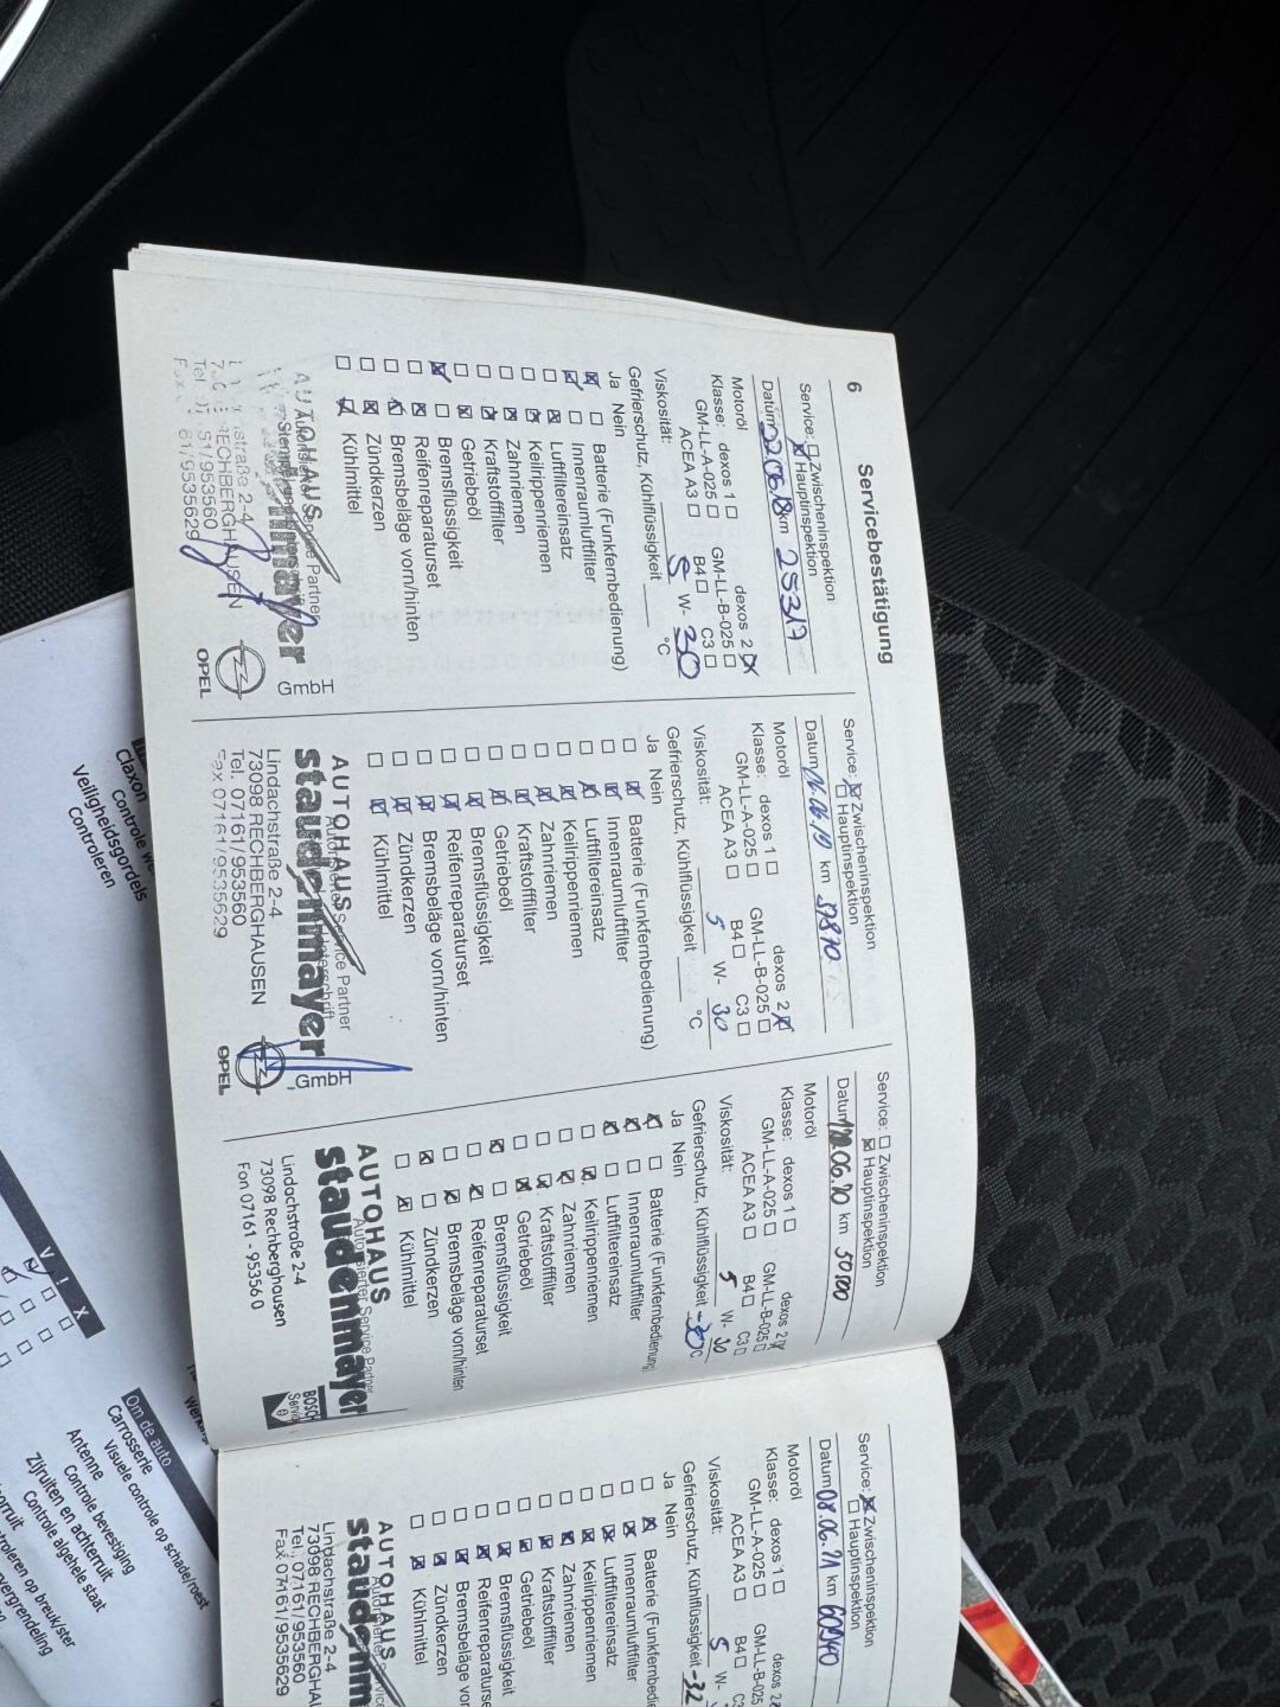 6
Servicebestätigung
Service: Zwischeninspektion
Hauptinspektion
Datum 22.06.18 km 25317
Motoröl dexos 2
Klasse: dexos 1
GM-LL-A-025 GM-LL-B-025
ACEA A3 B4 C3
Viskosität: 5 W- 30
Gefrierschutz, Kühlflüssigkeit °C
Ja Nein
Batterie (Funkfernbedienung)
Innenraumluftfilter
Luftfiltereinsatz
Keilrippenriemen
Zahnriemen
Kraftstofffilter
Getriebeöl
Bremsflüssigkeit
Reifenreparaturset
Bremsbeläge vorn/hinten
Zündkerzen
Kühlmittel
AUTOHAUS
Service Partner
GmbH
OPEL
Service: Zwischeninspektion
Hauptinspektion
Datum km 37870
Motoröl dexos 2
Klasse: dexos 1
GM-LL-A-025 GM-LL-B-025
ACEA A3 B4 C3
Viskosität: 5 W- 30
Gefrierschutz, Kühlflüssigkeit °C
Ja Nein
Batterie (Funkfernbedienung)
Innenraumluftfilter
Luftfiltereinsatz
Keilrippenriemen
Zahnriemen
Kraftstofffilter
Getriebeöl
Bremsflüssigkeit
Reifenreparaturset
Bremsbeläge vorn/hinten
Zündkerzen
Kühlmittel
AUTOHAUS
Service Partner
staudenmayer
GmbH
Lindachstraße 2-4
73098 RECHBERGHAUSEN
Tel. 07161/953560
Fax 07161/9535629
OPEL
Service: Zwischeninspektion
Hauptinspektion
Datum km 50000
Motoröl dexos 2
Klasse: dexos 1
GM-LL-A-025 GM-LL-B-025
ACEA A3 B4 C3
Viskosität: 5 W- 30
Gefrierschutz, Kühlflüssigkeit -30 °C
Ja Nein
Batterie (Funkfernbedienung
Innenraumluftfilter
Luftfiltereinsatz
Keilrippenriemen
Zahnriemen
Kraftstofffilter
Getriebeöl
Bremsflüssigkeit
Reifenreparaturset
Bremsbeläge vorn/hinten
Zündkerzen
Kühlmittel
AUTOHAUS
Autorisierter Service Partner
staudenmayer
Lindachstraße 2-4
73098 Rechberghausen
Fon 07161 - 953560
BOSCH
Service: Zwischeninspektion
Hauptinspektion
Datum 08.06.21 km 60940
Motoröl dexos 2
Klasse: dexos 1
GM-LL-A-025 GM-LL-B-025
ACEA A3 B4
Viskosität: 5 W-
Gefrierschutz, Kühlflüssigkeit -32
Ja Nein
Batterie (Funkfernbedie
Innenraumluftfilter
Luftfiltereinsatz
Keilrippenriemen
Zahnriemen
Kraftstofffilter
Getriebeöl
Bremsflüssigkeit
Reifenreparaturse
Bremsbeläge vor
Zündkerzen
Kühlmittel
AUTOHAUS
staudenm
Lindachstraße 2-4
73098 RECHBERGHAU
Tel. 07161/953560
Fax 07161/9535629
Claxon
Controle we
Veiligheidsgordels
Controleren
V ! X
Om de auto
Carrosserie
Visuele controle op schade/roest
Antenne
Controle bevestiging
Zijruiten en achterruit
Controle algehele staat